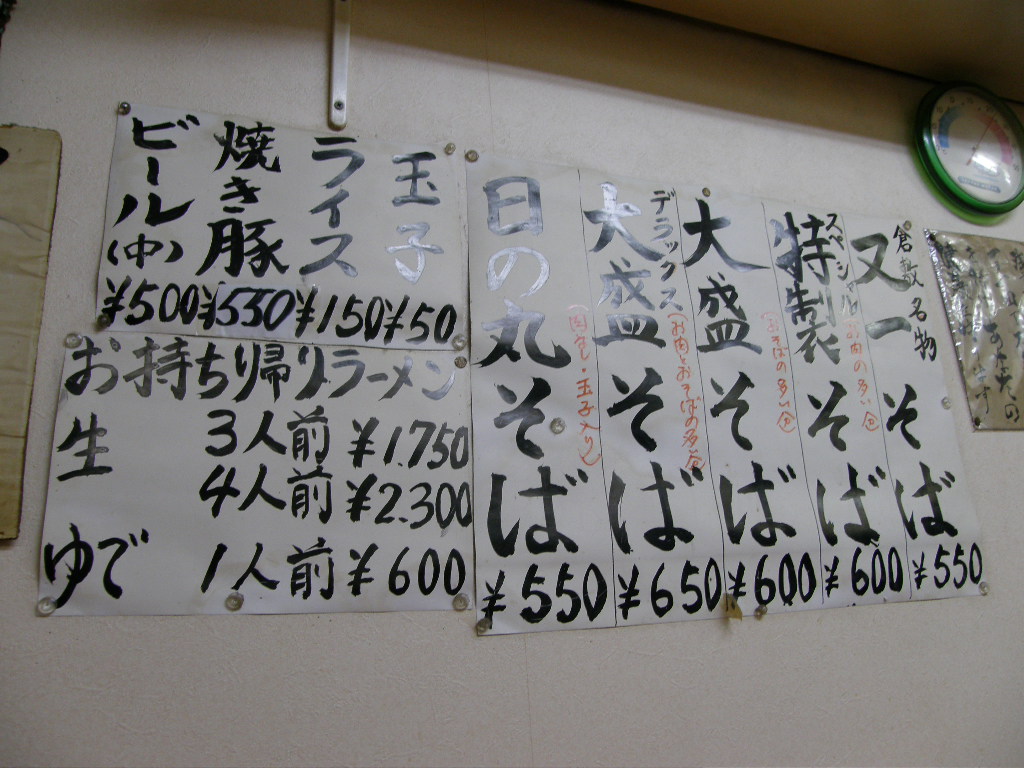 倉敷名物
又一そば
¥550
スペシャル
特製そば
(お肉の多い)
¥600
大盛そば
(おそばの多い)
¥600
デラックス
大盛そば
(お肉とおそばの多い)
¥650
日の丸そば
(肉なし・玉子入り)
¥550
玉子
¥50
ライス
¥150
焼き豚
¥550
ビール(中)
¥500
お持ち帰りラーメン
生 3人前 ¥1.750
4人前 ¥2.300
ゆで 1人前 ¥600